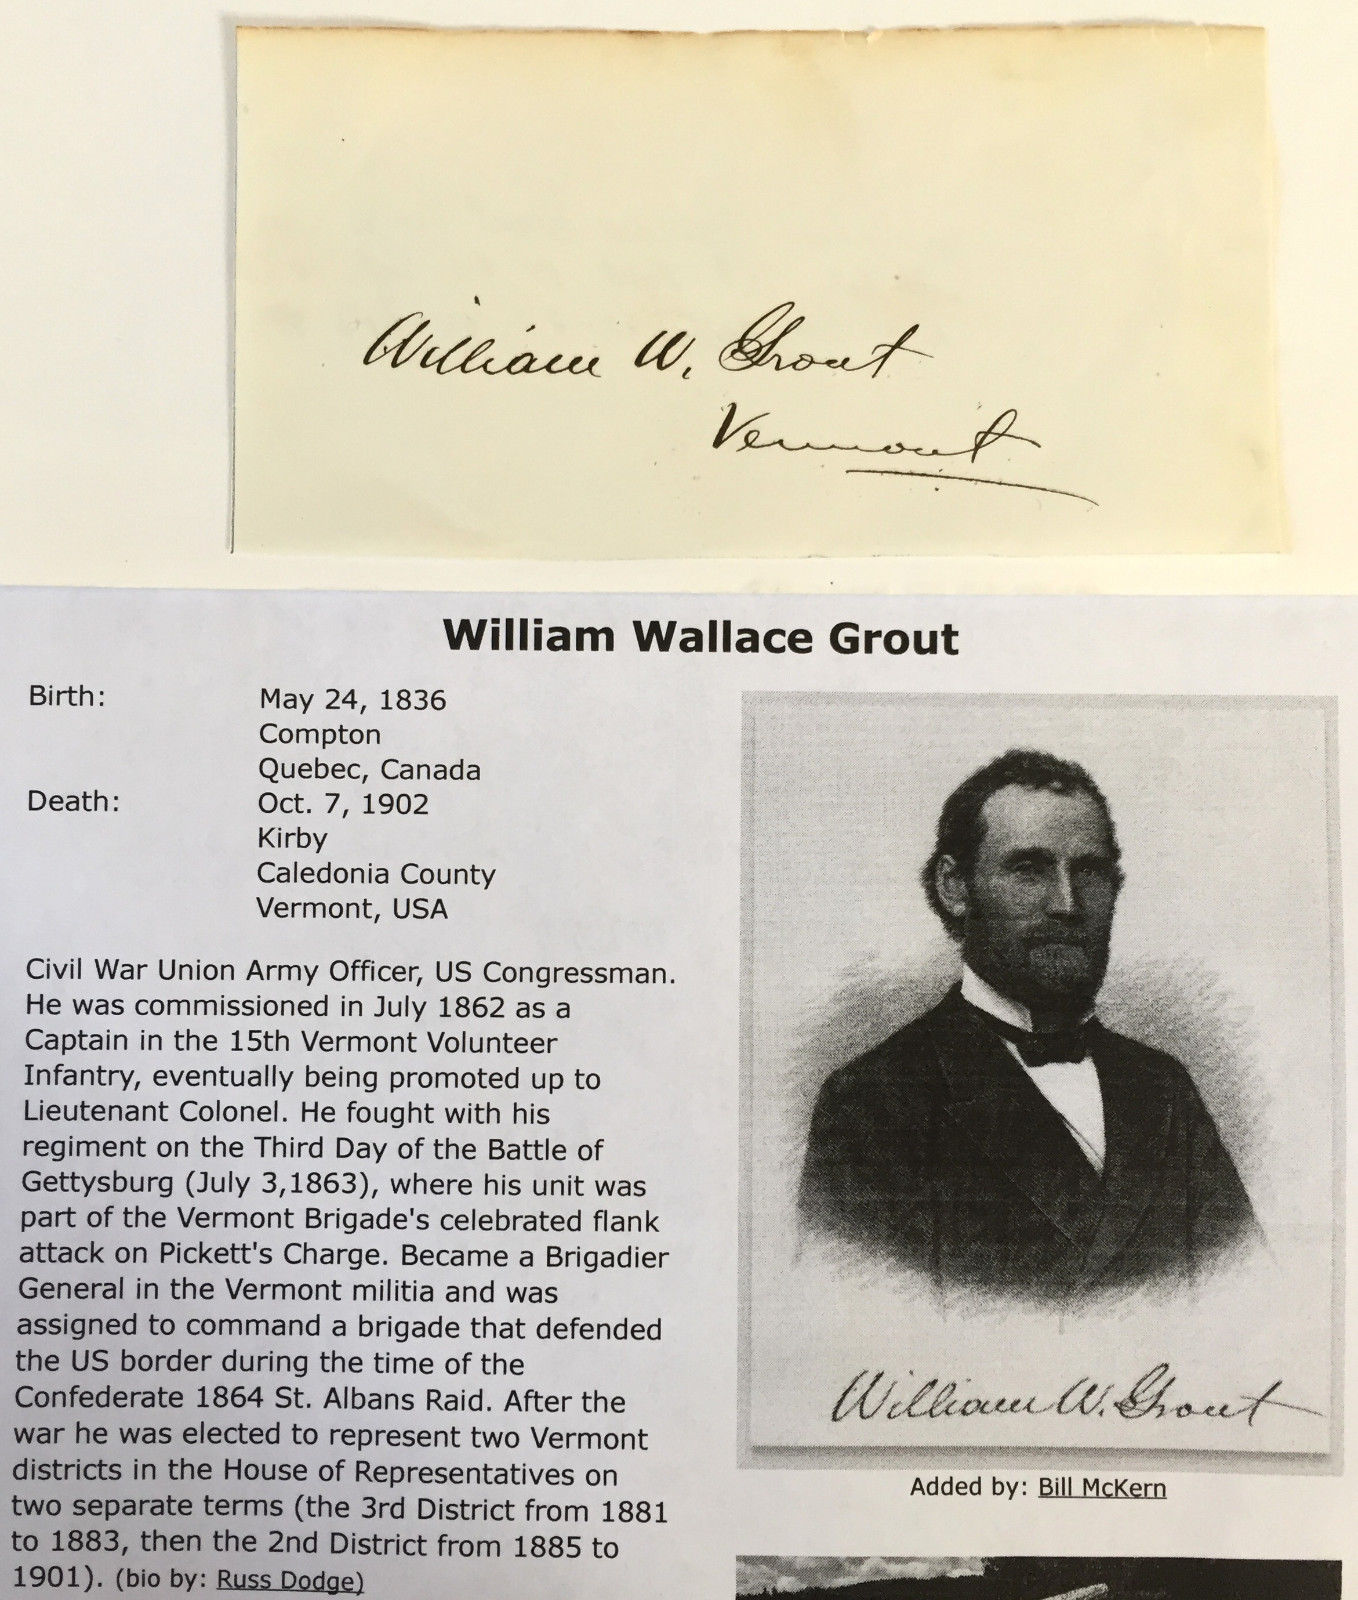 William W. Grout
Vermont
William Wallace Grout
Birth: May 24, 1836
Compton
Quebec, Canada
Death: Oct. 7, 1902
Kirby
Caledonia County
Vermont, USA
Civil War Union Army Officer, US Congressman.
He was commissioned in July 1862 as a
Captain in the 15th Vermont Volunteer
Infantry, eventually being promoted up to
Lieutenant Colonel. He fought with his
regiment on the Third Day of the Battle of
Gettysburg (July 3,1863), where his unit was
part of the Vermont Brigade's celebrated flank
attack on Pickett's Charge. Became a Brigadier
General in the Vermont militia and was
assigned to command a brigade that defended
the US border during the time of the
Confederate 1864 St. Albans Raid. After the
war he was elected to represent two Vermont
districts in the House of Representatives on
two separate terms (the 3rd District from 1881
to 1883, then the 2nd District from 1885 to
1901). (bio by: Russ Dodge)
William W. Grout
Added by: Bill McKern